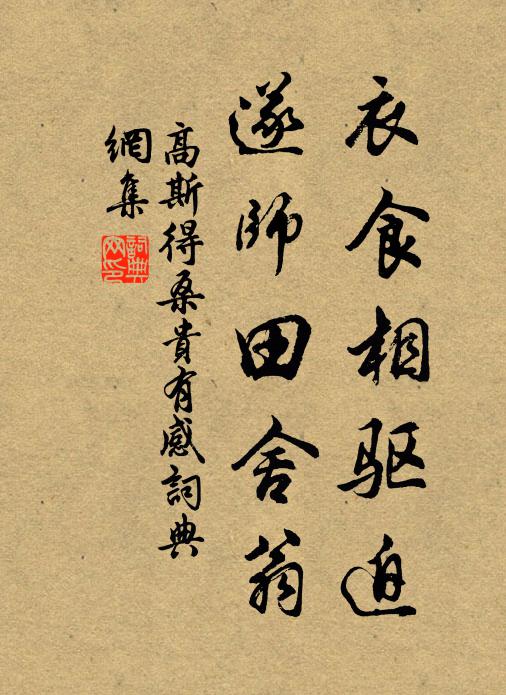 衣食相驱迫
遂師田舍翁
高斯得桑貴有感詞典
網集
詞典網印